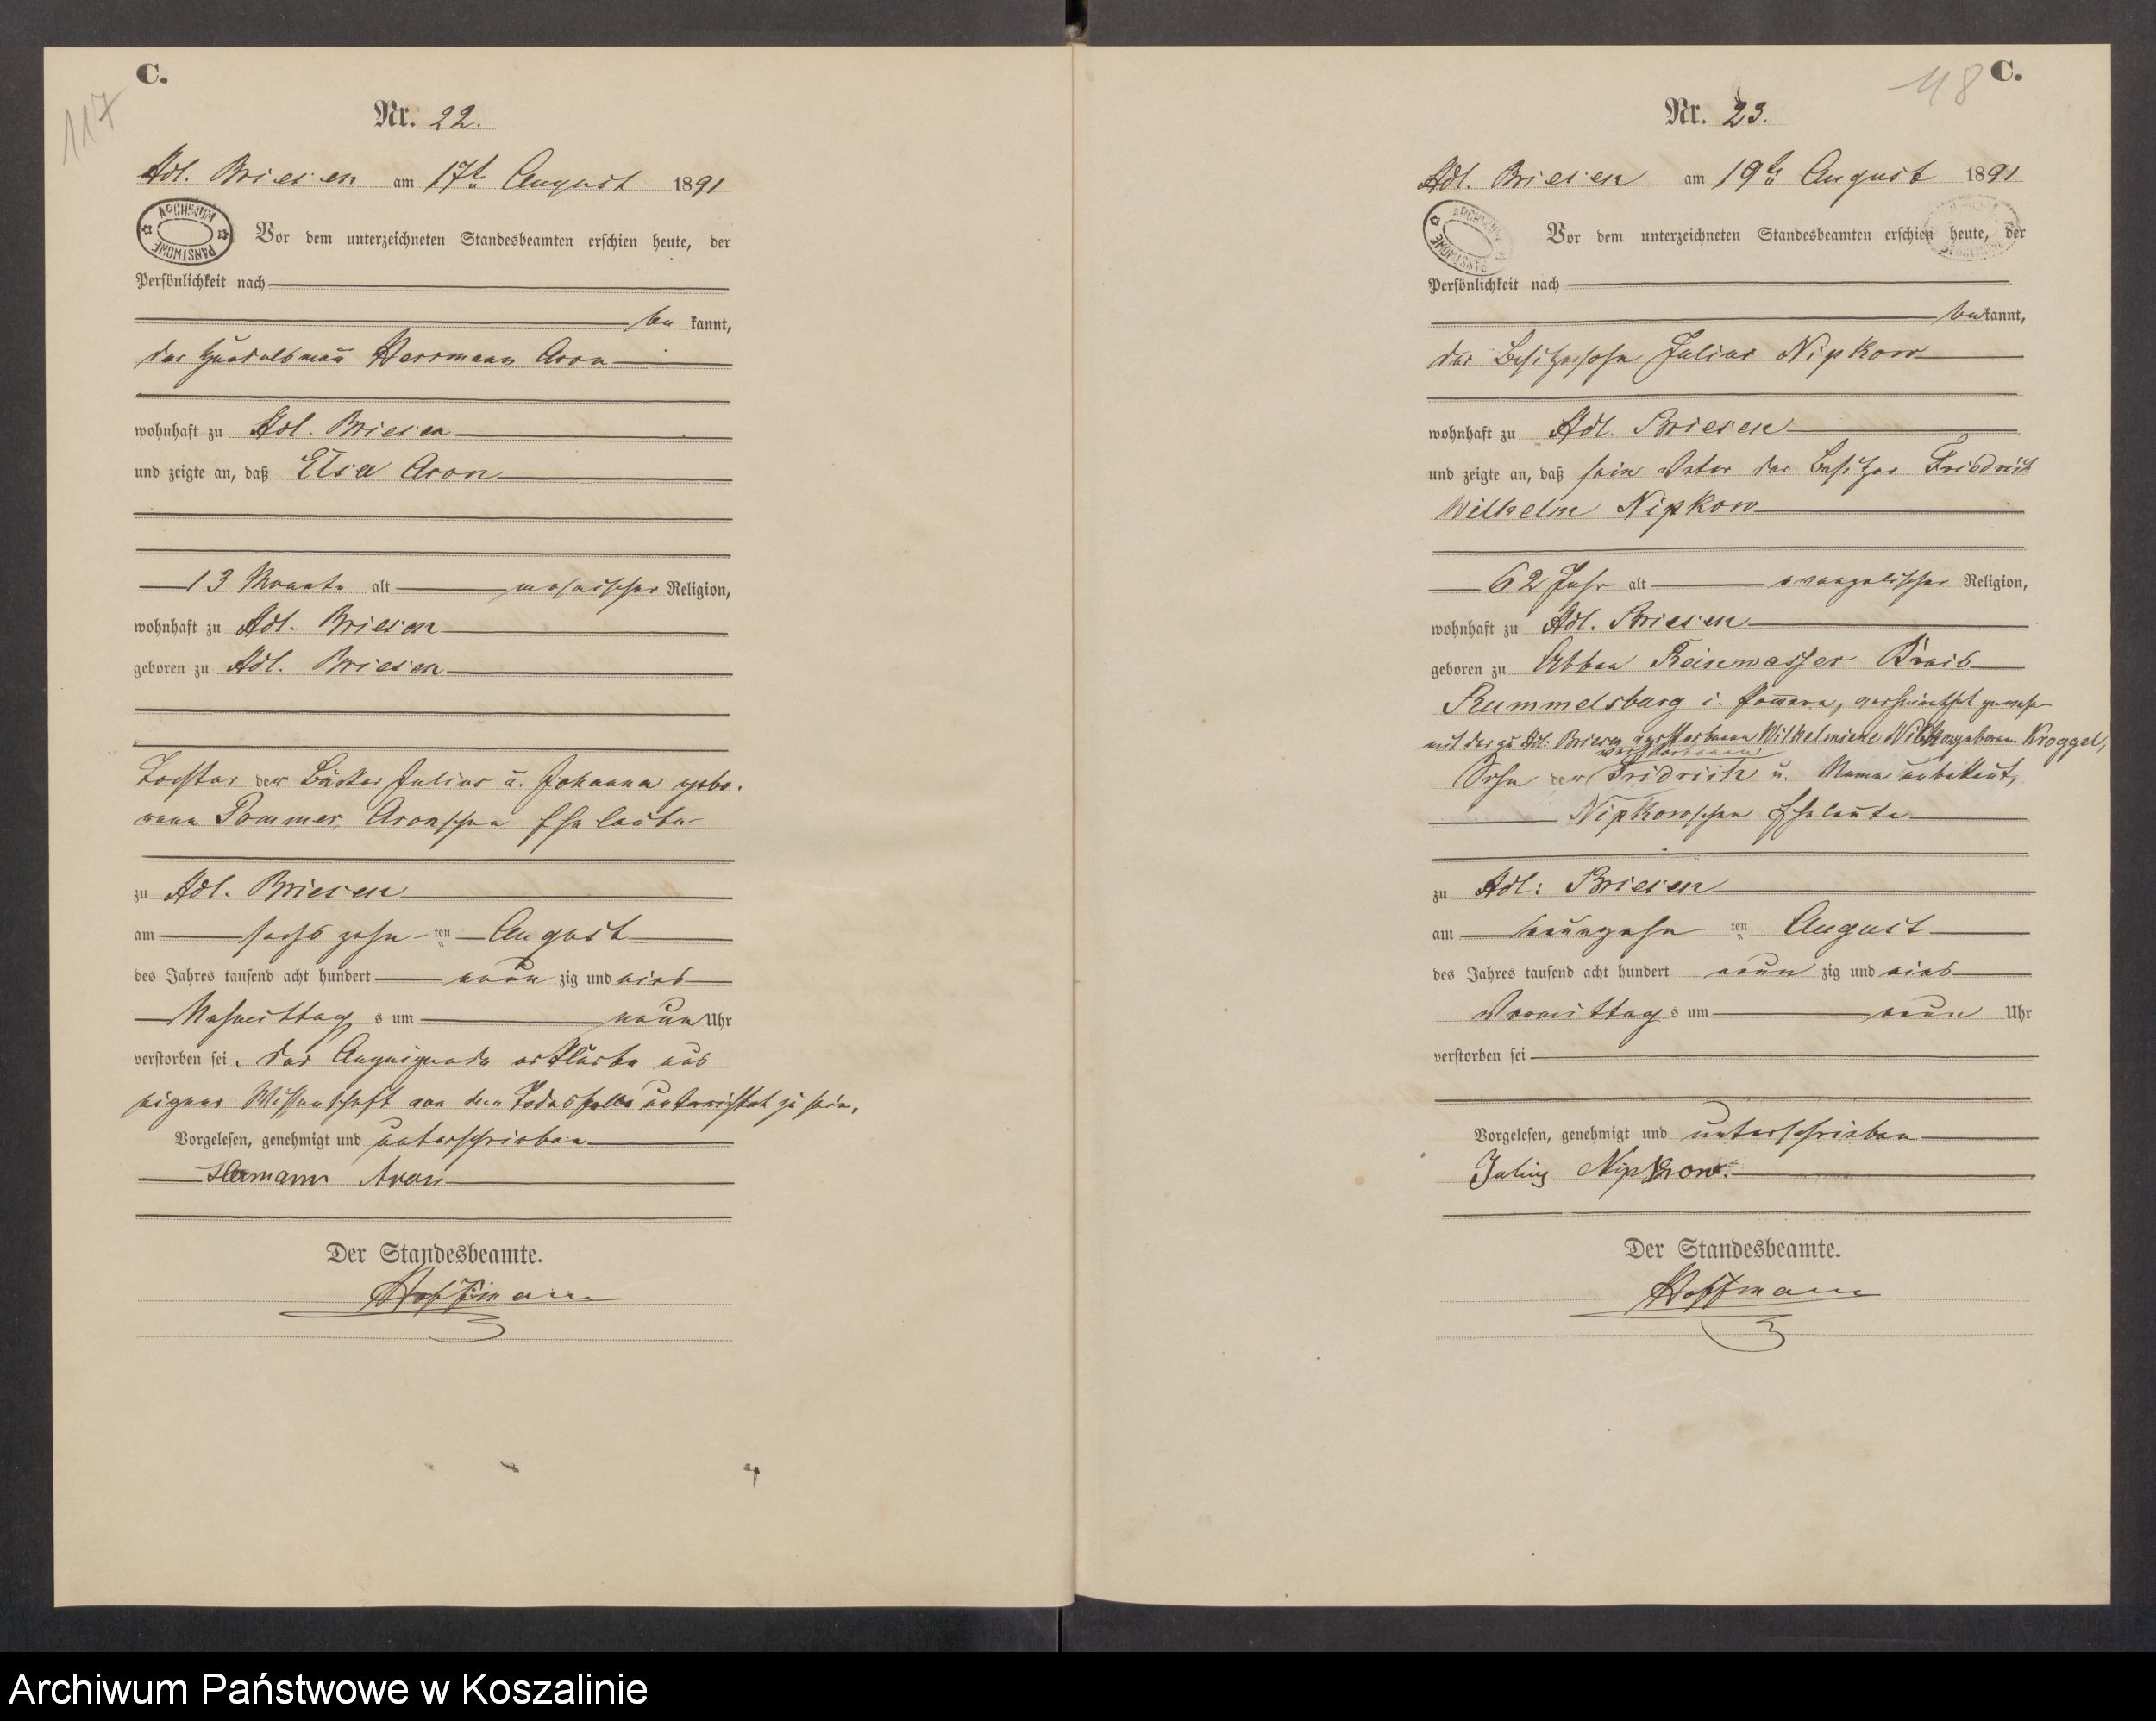 117
C.
Nr. 22.
Adl. Briesen am 17t August 1891
ARCHIWUM PAŃSTWOWE
Vor dem unterzeichneten Standesbeamten erschien heute, der
Persönlichkeit nach
be kannt,
der Handelsmañ Herrmann Aron
wohnhaft zu Adl. Briesen
und zeigte an, daß Elsa Aron
13 Monate alt mosaischer Religion,
wohnhaft zu Adl. Briesen
geboren zu Adl. Briesen
Tochter der Bäcker Julius u. Johanna gebo-
rene Pommer, Aronschen Eheleute
zu Adl. Briesen
am sechszehn ten August
des Jahres tausend acht hundert neun zig und eins
Nachmittag s um neun Uhr
verstorben sei, der Anzeigende erklärte aus
eigener Wissenschaft von dem Todesfalle unterrichtet zu sein.
Vorgelesen, genehmigt und unterschrieben
Hermann Aron
Der Standesbeamte.
Hoffmann
118
C.
Nr. 23.
Adl. Briesen am 19t August 1891
ARCHIWUM PAŃSTWOWE
Vor dem unterzeichneten Standesbeamten erschien heute, der
Persönlichkeit nach
be kannt,
der Besitzersohn Julius Nipkow
wohnhaft zu Adl. Briesen
und zeigte an, daß sein Vater der Besitzer Friedrich
Wilhelm Nipkow
62 Jahr alt evangelischer Religion,
wohnhaft zu Adl. Briesen
geboren zu Reinwasser Kreis
Rummelsburg i. Pom̄ern, verheirathet gewesen
mit der zu Adl: Briesen verstorbenen Wilhelmine geborenen Kroggel,
verstorbenen
Sohn der Fridrich u. Name unbekañt,
Nipkowschen Eheleute
zu Adl: Briesen
am neunzehn ten August
des Jahres tausend acht hundert neun zig und eins
Vormittag s um neun Uhr
verstorben sei
Vorgelesen, genehmigt und unterschrieben
Julius Nipkow.
Der Standesbeamte.
Hoffmann
Archiwum Państwowe w Koszalinie